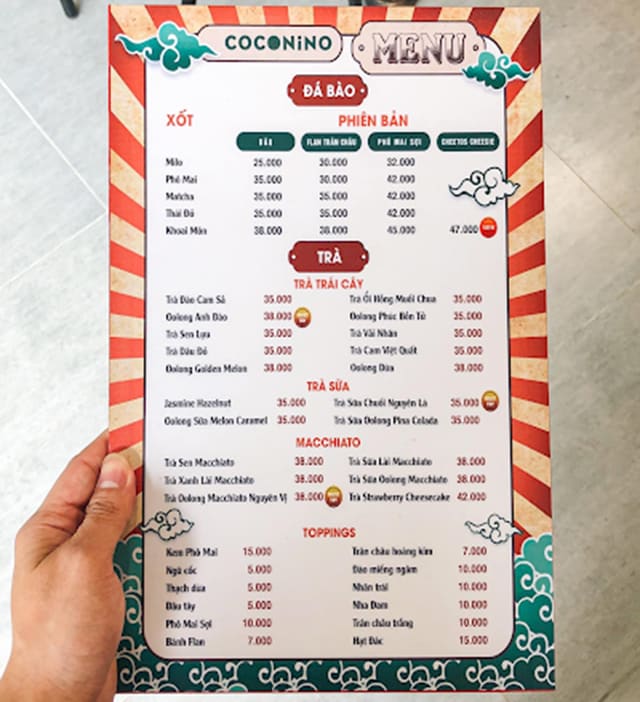 COCONINO
MENU
ĐÁ BÀO
XỐT PHIÊN BẢN
FLAN TRÂN CHÂU PHÔ MAI SỢI CHEETOS CHEESIE
Milo 25.000 30.000 32.000
Phô Mai 35.000 30.000 42.000
Matcha 35.000 35.000 42.000
Thái Đỏ 35.000 35.000 42.000
Khoai Môn 38.000 38.000 45.000 47.000
TRÀ
TRÀ TRÁI CÂY
Trà Đào Cam Sả 35.000 Trà Ổi Hồng Muối Chua 35.000
Oolong Anh Đào 38.000 Oolong Phúc Bồn Tử 35.000
Trà Sen Lựu 35.000 Trà Vải Nhãn 35.000
Trà Dâu Đỏ 35.000 Trà Cam Việt Quất 35.000
Oolong Golden Melon 38.000 Oolong Dừa 38.000
TRÀ SỮA
Jasmine Hazelnut 35.000 Trà Sữa Chuối Nguyên Lá 35.000
Oolong Sữa Melon Caramel 35.000 Trà Sữa Oolong Pina Colada 35.000
MACCHIATO
Trà Sen Macchiato 38.000 Trà Sữa Lài Macchiato 38.000
Trà Xanh Lài Macchiato 38.000 Trà Sữa Oolong Macchiato 38.000
Trà Oolong Macchiato Nguyên Vị 38.000 Trà Strawberry Cheesecake 42.000
TOPPINGS
Kem Phô Mai 15.000 Trân châu hoàng kim 7.000
Ngũ cốc 5.000 Đào miếng ngâm 10.000
Thạch dừa 5.000 Nhãn trái 10.000
Dâu tây 5.000 Nha Đam 10.000
Phô Mai Sợi 10.000 Trân châu trắng 10.000
Bánh Flan 7.000 Hạt Đác 15.000